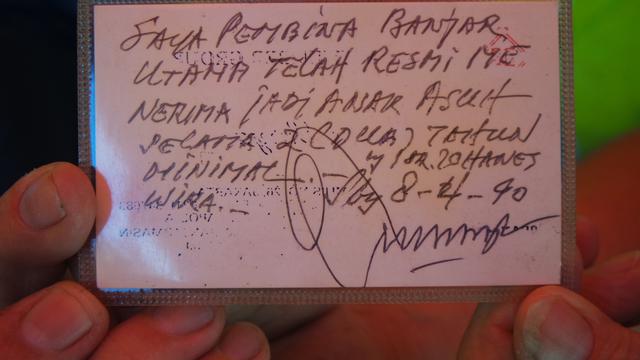 SAYA PEMBINA BANJAR
UTAMA TELAH RESMI ME
NERIMA JADI ANAK ASUH
SELAMA 2 (DUA) TAHUN
MINIMAL YOHANES
WIRA._ Sby 8-4-90